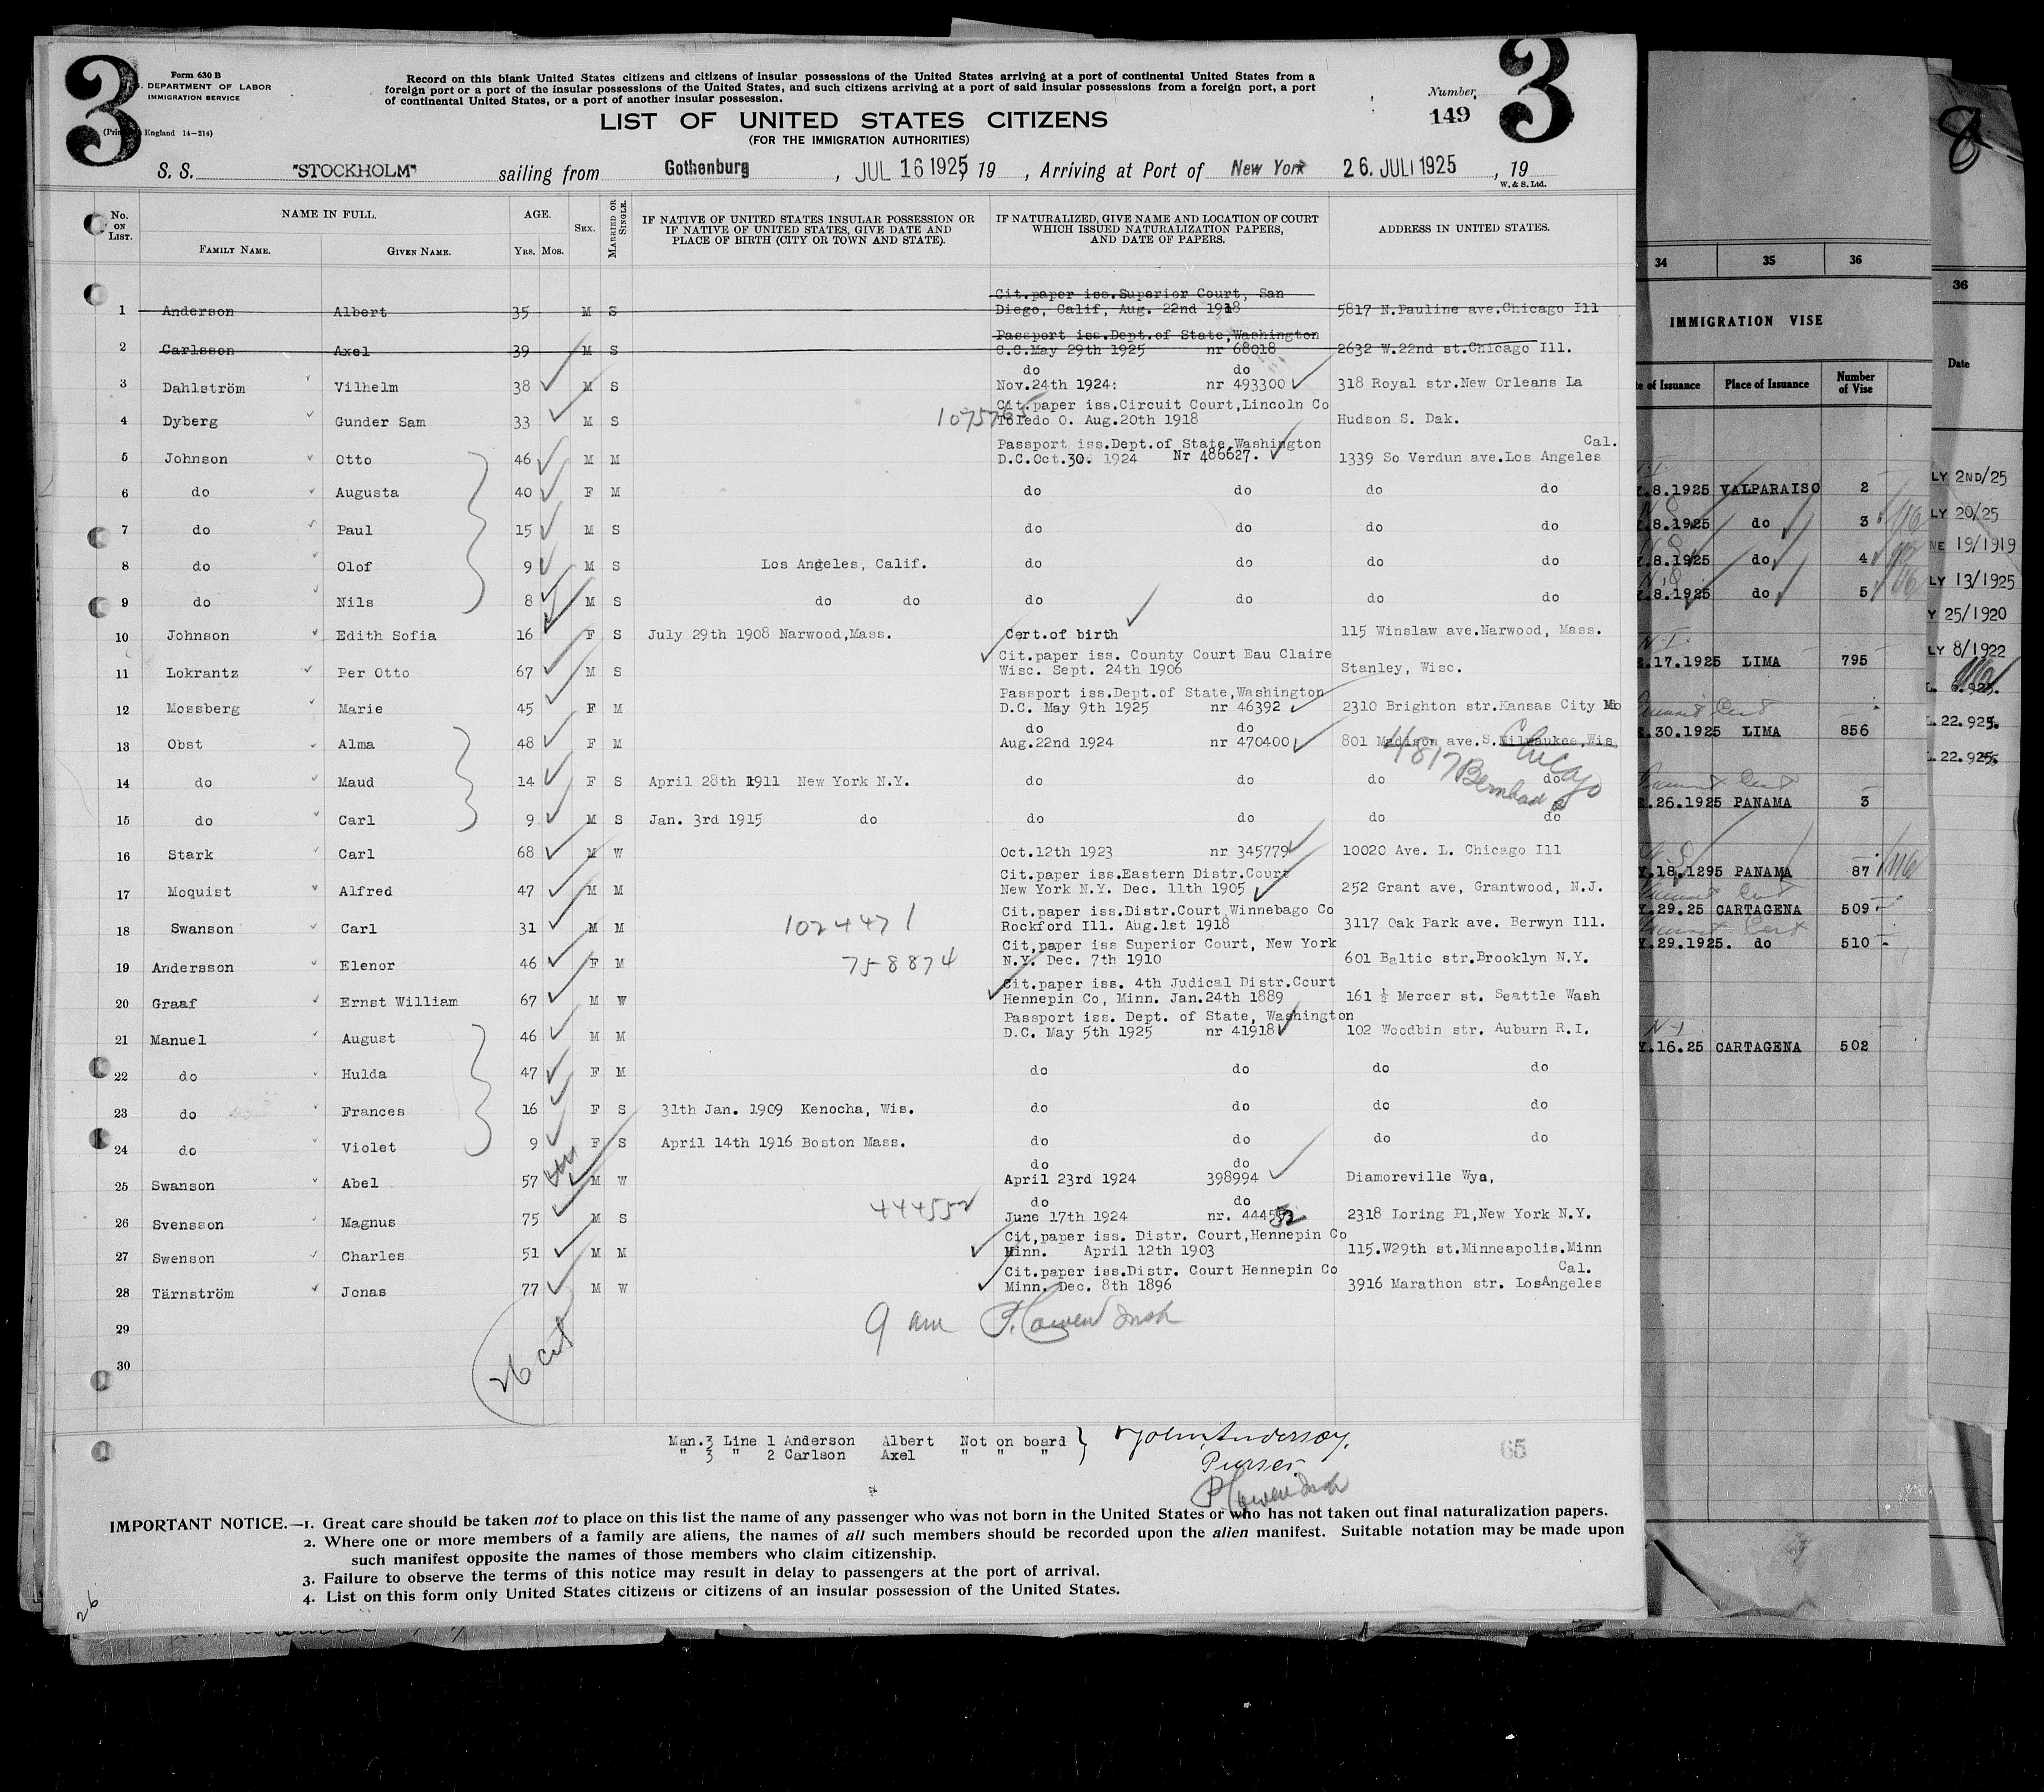 3
Form 630 B
DEPARTMENT OF LABOR
IMMIGRATION SERVICE
England 14-214)
Record on this blank United States citizens and citizens of insular possessions of the United States arriving at a port of continental United States from a
foreign port or a port of the insular possessions of the United States, and such citizens arriving at a port of said insular possessions from a foreign port, a port
of continental United States, or a port of another insular possession.
Number
149
3
LIST OF UNITED STATES CITIZENS
(FOR THE IMMIGRATION AUTHORITIES)
S. S. "STOCKHOLM" sailing from Gothenburg, JUL 16 1925, 19 , Arriving at Port of New York 26. JULI 1925, 19
W. & S. Ltd.
No. ON LIST. NAME IN FULL. FAMILY NAME. GIVEN NAME. AGE. YRS. MOS. SEX. MARRIED OR SINGLE. IF NATIVE OF UNITED STATES INSULAR POSSESSION OR IF NATIVE OF UNITED STATES, GIVE DATE AND PLACE OF BIRTH (CITY OR TOWN AND STATE). IF NATURALIZED, GIVE NAME AND LOCATION OF COURT WHICH ISSUED NATURALIZATION PAPERS, AND DATE OF PAPERS. ADDRESS IN UNITED STATES.
Cit.paper iss.Superior Court, San
1 Anderson Albert 35 M S Diego, Calif, Aug. 22nd 1918 5817 N.Pauline ave.Chicago Ill
Passport iss.Dept.of State,Washington
2 Carlsson Axel 39 M S C.C.May 29th 1925 nr 68018 2632 W.22nd st.Chicago Ill.
do do
3 Dahlström Vilhelm 38 M S Nov.24th 1924: nr 493300 318 Royal str.New Orleans La
Cit.paper iss.Circuit Court,Lincoln Co
4 Dyberg Gunder Sam 33 M S Toledo O. Aug.20th 1918 Hudson S. Dak.
Passport iss.Dept.of State,Washington Cal.
5 Johnson Otto 46 M M D.C.Oct.30. 1924 Nr 486627. 1339 So Verdun ave.Los Angeles
6 do Augusta 40 F M do do do do
7 do Paul 15 M S do do do do
8 do Olof 9 M S Los Angeles, Calif. do do do do
9 do Nils 8 M S do do do do do do
10 Johnson Edith Sofia 16 F S July 29th 1908 Narwood,Mass. Cert.of birth 115 Winslaw ave.Narwood, Mass.
Cit.paper iss. County Court Eau Claire
11 Lokrantz Per Otto 67 M S Wisc. Sept. 24th 1906 Stanley, Wisc.
Passport iss.Dept.of State,Washington
12 Mossberg Marie 45 F M D.C. May 9th 1925 nr 46392 2310 Brighton str.Kansas City Mo
do do
13 Obst Alma 48 F M Aug.22nd 1924 nr 470400 801 Madison ave.S.Milwaukee,Wis
Chicago
4817 Bernhard
14 do Maud 14 F S April 28th 1911 New York N.Y. do do do do
15 do Carl 9 M S Jan. 3rd 1915 do do do do do
16 Stark Carl 68 M W Oct.12th 1923 nr 345779 10020 Ave. L. Chicago Ill
Cit.paper iss.Eastern Distr.Court
17 Moquist Alfred 47 M M New York N.Y. Dec. 11th 1905 252 Grant ave, Grantwood, N.J.
Cit.paper iss.Distr.Court,Winnebago Co
18 Swanson Carl 31 M M 1024471 Rockford Ill. Aug.1st 1918 3117 Oak Park ave. Berwyn Ill.
Cit,paper iss Superior Court, New York
19 Andersson Elenor 46 F M 758874 N.Y. Dec. 7th 1910 601 Baltic str.Brooklyn N.Y.
Cit.paper iss. 4th Judical Distr.Court
20 Graaf Ernst William 67 M W Hennepin Co, Minn. Jan.24th 1889 161 ½ Mercer st. Seattle Wash
Passport iss. Dept. of State, Washington
21 Manuel August 46 M M D.C. May 5th 1925 nr 41918 102 Woodbin str. Auburn R.I.
22 do Hulda 47 F M do do do do
23 do Frances 16 F S 31th Jan. 1909 Kenocha, Wis. do do do do
24 do Violet 9 F S April 14th 1916 Boston Mass. do do do do
do do
25 Swanson Abel 57 M W April 23rd 1924 398994 Diamoreville Wyo,
do do
26 Svensson Magnus 75 M S 444552 June 17th 1924 nr. 444552 2318 Loring Pl,New York N.Y.
Cit,paper iss. Distr. Court,Hennepin Co
27 Swenson Charles 51 M M Minn. April 12th 1903 115.W29th st.Minneapolis.Minn
Cit.paper iss.Distr. Court Hennepin Co Cal.
28 Tärnström Jonas 77 M W Minn. Dec. 8th 1896 3916 Marathon str. LosAngeles
29
9 am
30
26 cit
Man.3 Line 1 Anderson Albert Not on board
" 3 " 2 Carlson Axel " " "
John Anderson,
Purser
65
IMPORTANT NOTICE.—1. Great care should be taken not to place on this list the name of any passenger who was not born in the United States or who has not taken out final naturalization papers.
2. Where one or more members of a family are aliens, the names of all such members should be recorded upon the alien manifest. Suitable notation may be made upon
such manifest opposite the names of those members who claim citizenship.
3. Failure to observe the terms of this notice may result in delay to passengers at the port of arrival.
4. List on this form only United States citizens or citizens of an insular possession of the United States.
26
34 35 36
IMMIGRATION VISE
of Issuance Place of Issuance Number of Vise
.8.1925 VALPARAISO 2
.8.1925 do 3
.8.1925 do 4
.8.1925 do 5
.17.1925 LIMA 795
.30.1925 LIMA 856
.26.1925 PANAMA 3
.18.1295 PANAMA 87
.29.25 CARTAGENA 509
.29.1925. do 510
.16.25 CARTAGENA 502
8
36
Date
LY 2ND/25
LY 20/25
NE 19/1919
LY 13/1925
Y 25/1920
LY 8/1922
6.925.
.22.925.
.22.925.